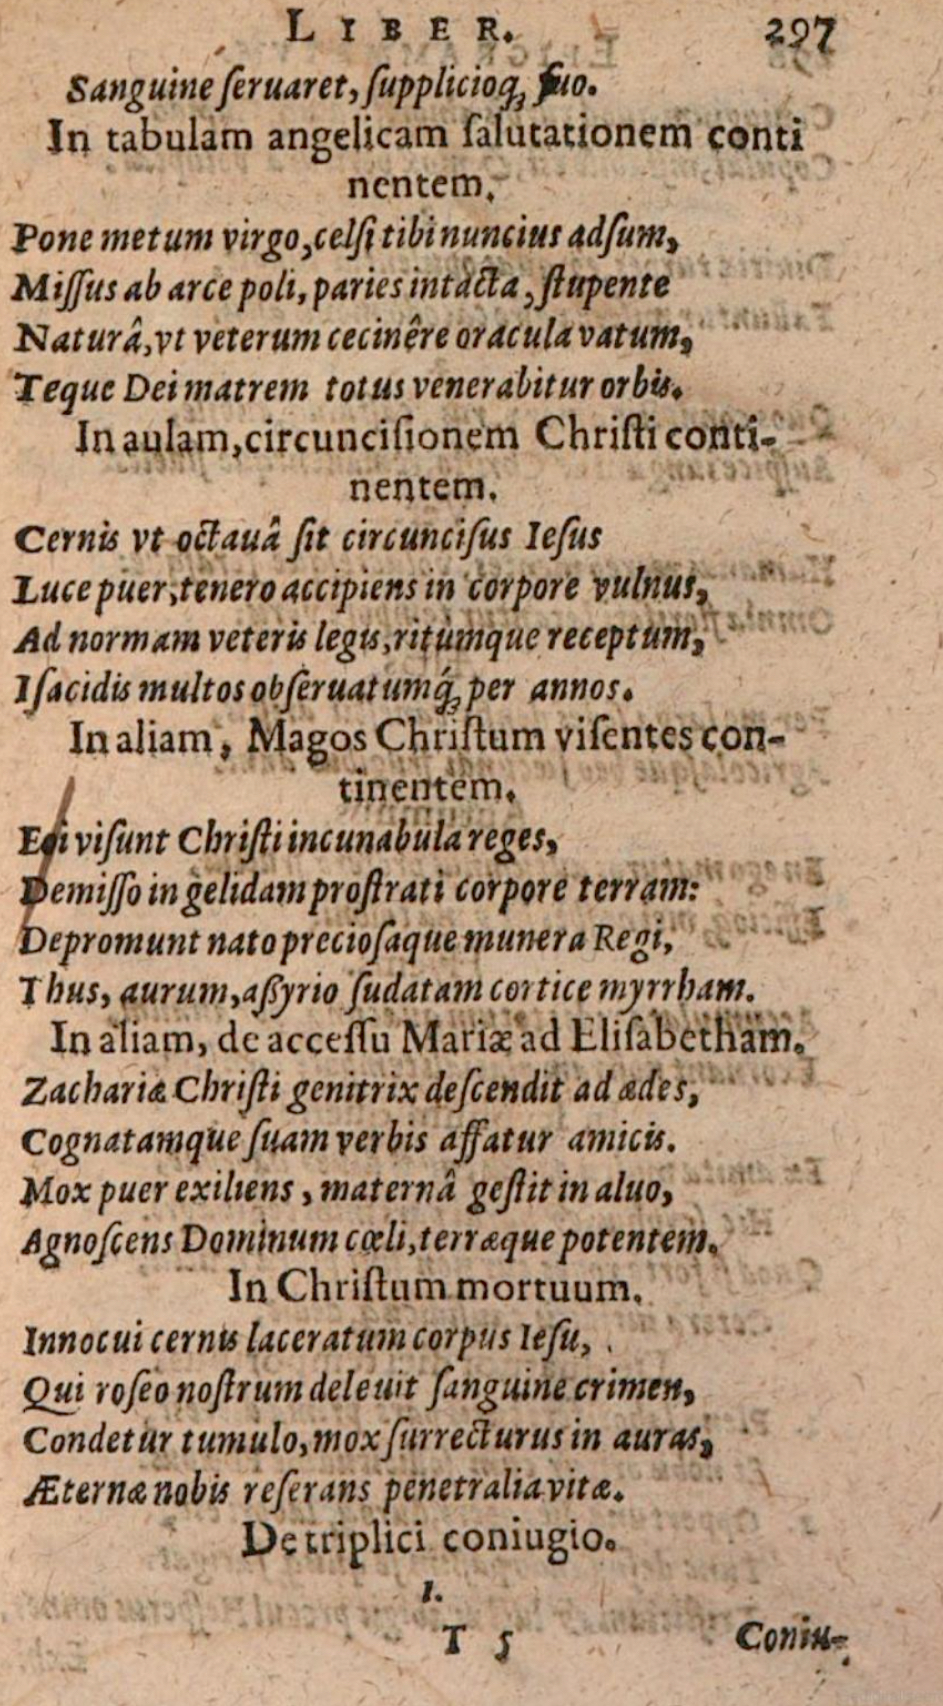 LIBER. 297
Sanguine ſeruaret, ſupplicioq́; ſuo.
In tabulam angelicam ſalutationem conti
nentem.
Pone metum virgo, celſi tibi nuncius adſum,
Miſſus ab arce poli, paries intacta, ſtupente
Naturâ, vt veterum cecinêre oracula vatum,
Teque Dei matrem totus venerabitur orbis.
In aulam, circunciſionem Chriſti conti-
nentem.
Cernis vt octauâ ſit circunciſus Ieſus
Luce puer, tenero accipiens in corpore vulnus,
Ad normam veteris legis, ritumque receptum,
Iſacidis multos obſeruatumq́; per annos.
In aliam, Magos Chriſtum viſentes con-
tinentem.
Eoi viſunt Chriſti incunabula reges,
Demiſſo in gelidam proſtrati corpore terram:
Depromunt nato precioſaque munera Regi,
Thus, aurum, aßyrio ſudatam cortice myrrham.
In aliam, de acceſſu Mariæ ad Eliſabetham.
Zachariæ Chriſti genitrix deſcendit ad ædes,
Cognatamque ſuam verbis affatur amicis.
Mox puer exiliens, maternâ geſtit in aluo,
Agnoſcens Dominum cœli, terræque potentem.
In Chriſtum mortuum.
Innocui cernis laceratum corpus Ieſu,
Qui roſeo noſtrum deleuit ſanguine crimen,
Condetur tumulo, mox ſurrecturus in auras,
Æternæ nobis reſerans penetralia vitæ.
De triplici coniugio.
1.
T 5 Coniu-